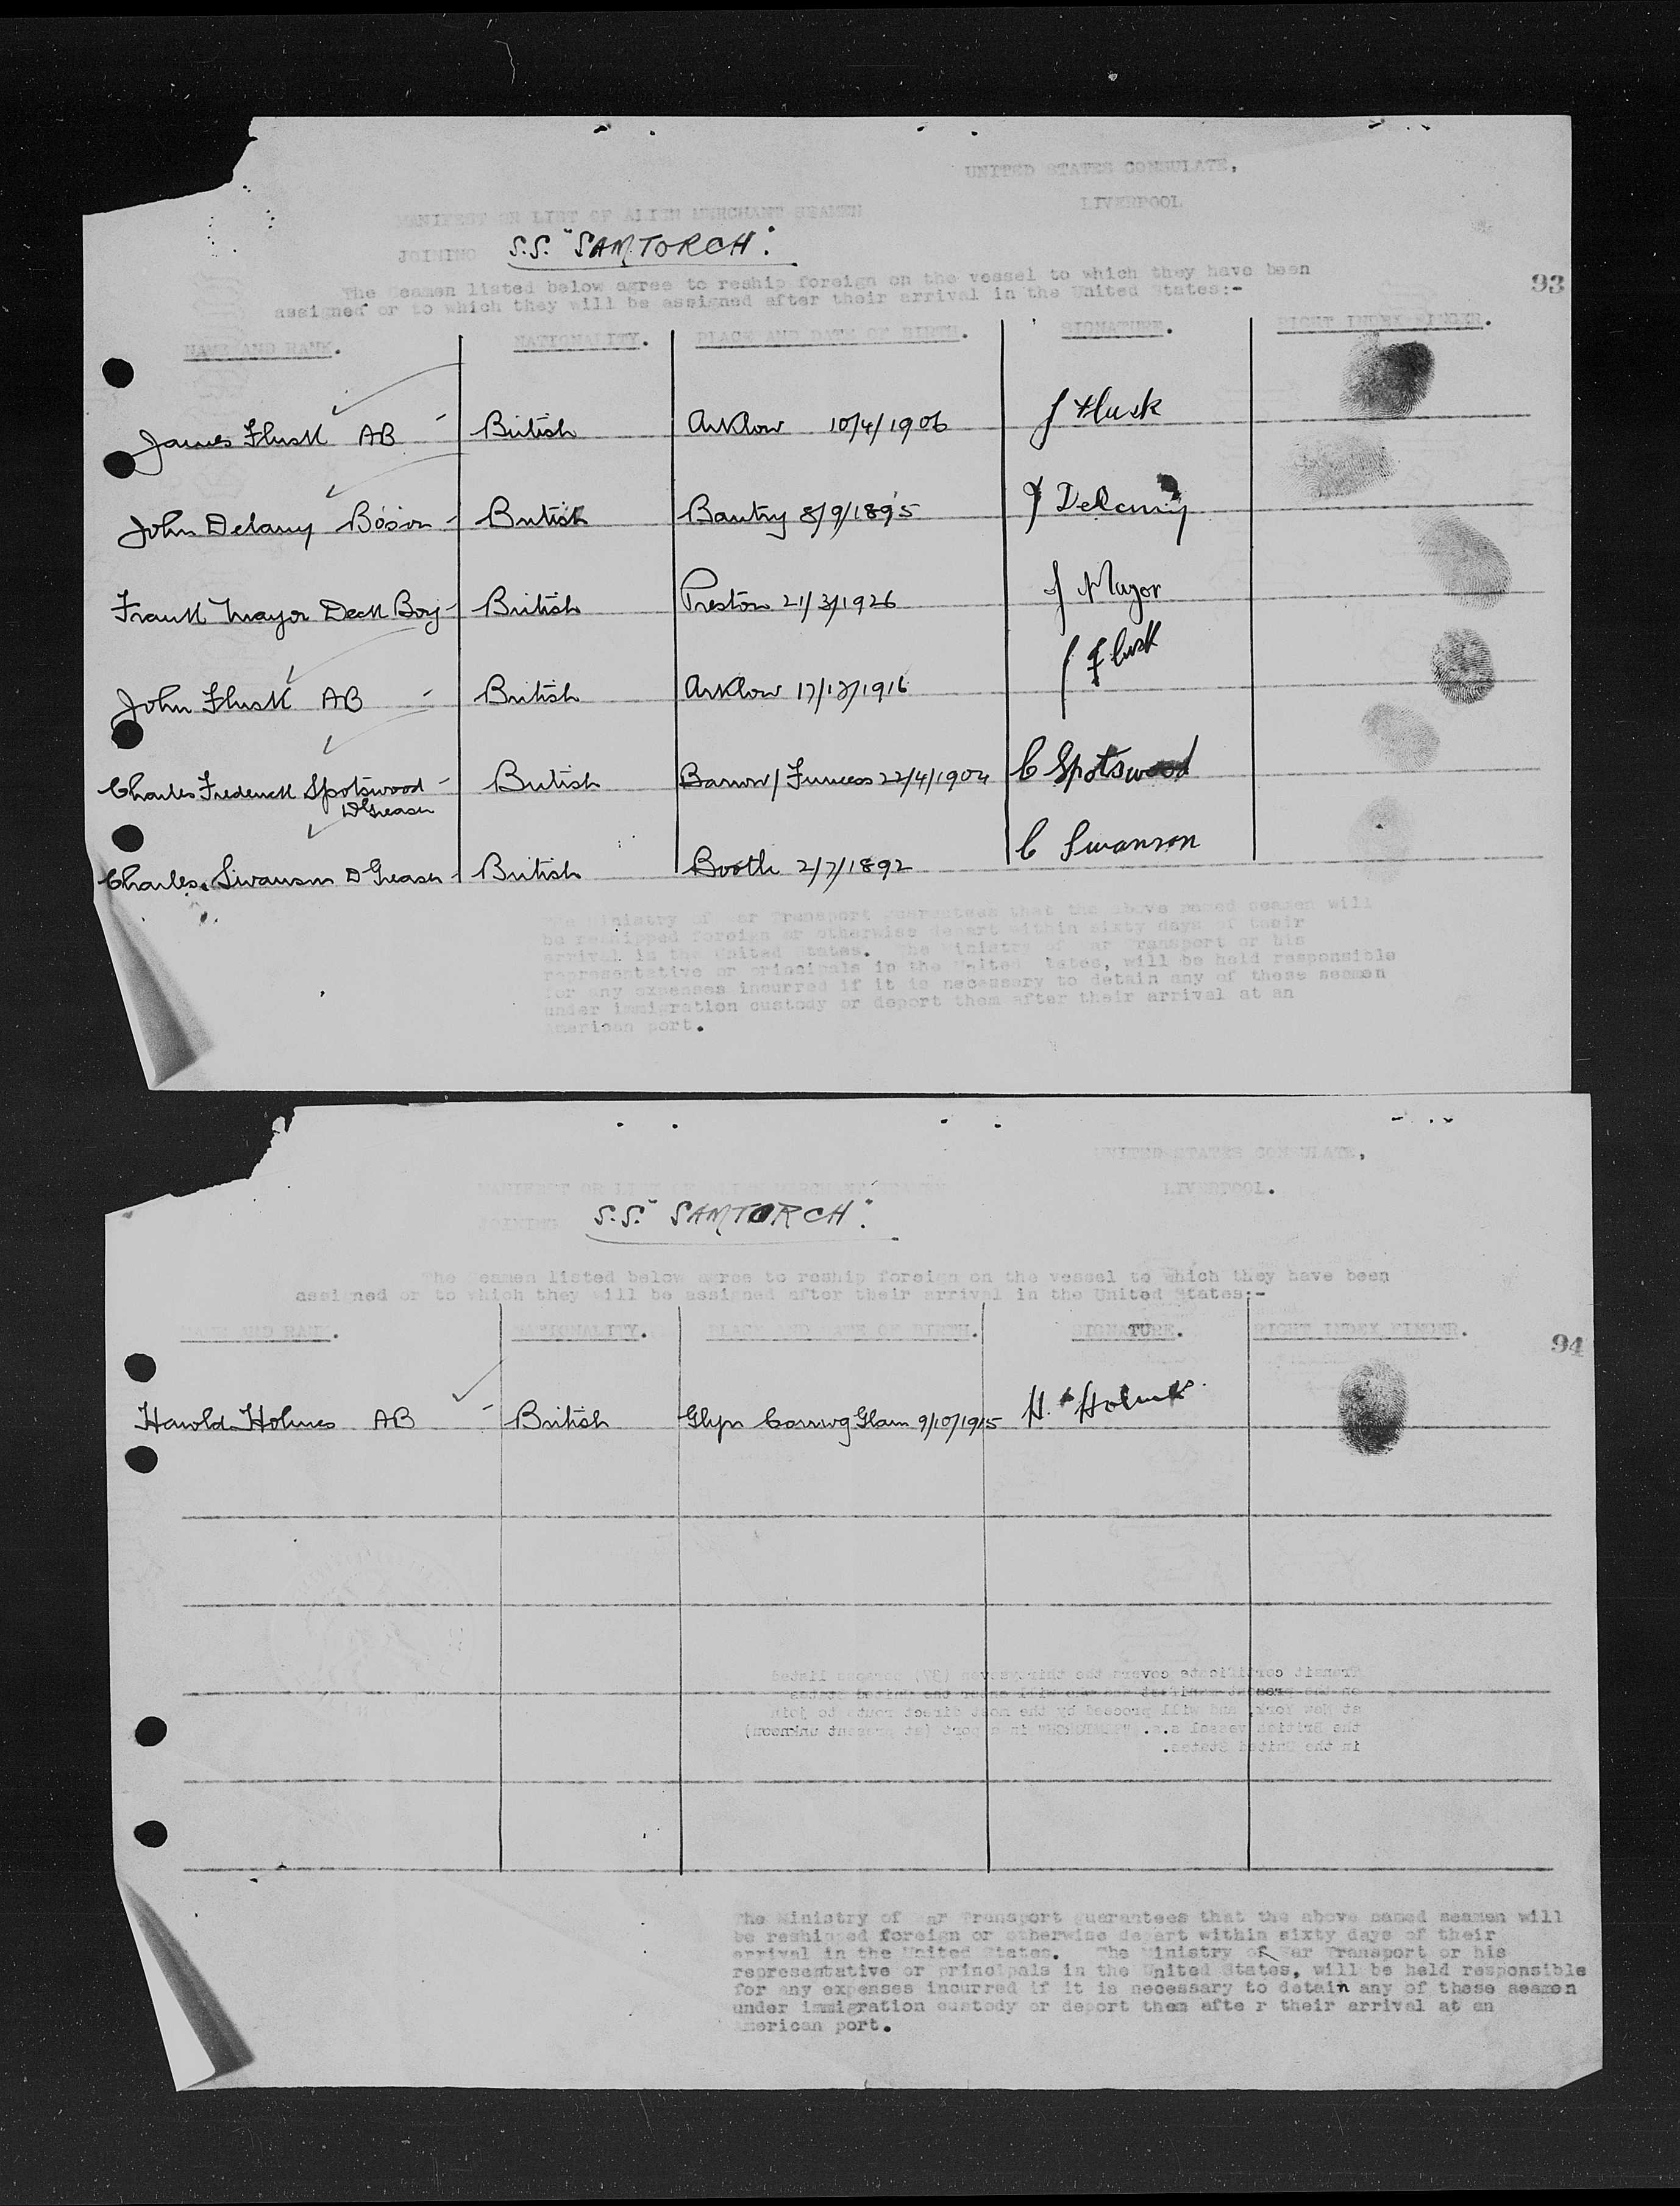 UNITED STATES CONSULATE,
LIVERPOOL
MANIFEST OR LIST OF ALIEN MERCHANT SEAMEN
JOINING S.S. "SAMTORCH".
The Seamen listed below agree to reship foreign on the vessel to which they have been
assigned or to which they will be assigned after their arrival in the United States:-
93
NAME AND RANK. NATIONALITY. PLACE AND DATE OF BIRTH. SIGNATURE. RIGHT INDEX FINGER.
James Flusk AB - British Arklow 10/4/1906 J Flusk
John Delany Boson - British Bantry 8/9/1895 J Delany
Frank Mayor Deck Boy - British Preston 21/3/1926 F Mayor
John Flusk AB - British Arklow 17/12/1916 J Flusk
Charles Frederick Spotswood - British Barrow/Furness 22/4/1904 C Spotswood
D Greaser
Charles Swanson D Greaser - British Bootle 2/7/1892 C Swanson
The Ministry of War Transport guarantees that the above named seamen will
be reshipped foreign or otherwise depart within sixty days of their
arrival in the United States. The Ministry of War Transport or his
representative or principals in the United States, will be held responsible
for any expenses incurred if it is necessary to detain any of these seamen
under immigration custody or deport them after their arrival at an
American port.
UNITED STATES CONSULATE,
LIVERPOOL.
MANIFEST OR LIST OF ALIEN MERCHANT SEAMEN
JOINING S.S. "SAMTORCH".
The Seamen listed below agree to reship foreign on the vessel to which they have been
assigned or to which they will be assigned after their arrival in the United States:-
NAME AND RANK. NATIONALITY. PLACE AND DATE OF BIRTH. SIGNATURE. RIGHT INDEX FINGER.
94
Harold Holmes AB - British Glyn Corrwg Glam 9/10/1915 H. Holmes.
Transit certificate covers the thirtyseven (37) persons listed
on the present manifest and who will enter the United States
at New York, and will proceed by the most direct route to join
the British vessel s.s. "SAMTORCH" in a port (at present unknown)
in the United States.
The Ministry of War Transport guarantees that the above named seamen will
be reshipped foreign or otherwise depart within sixty days of their
arrival in the United States. The Ministry of War Transport or his
representative or principals in the United States, will be held responsible
for any expenses incurred if it is necessary to detain any of these seamen
under immigration custody or deport them afte r their arrival at an
American port.